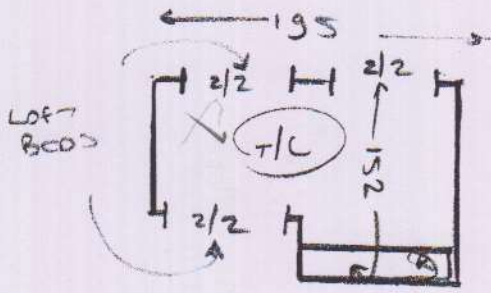 195
2/2 2/2
LOFT
BEDS
T/C
152
2/2